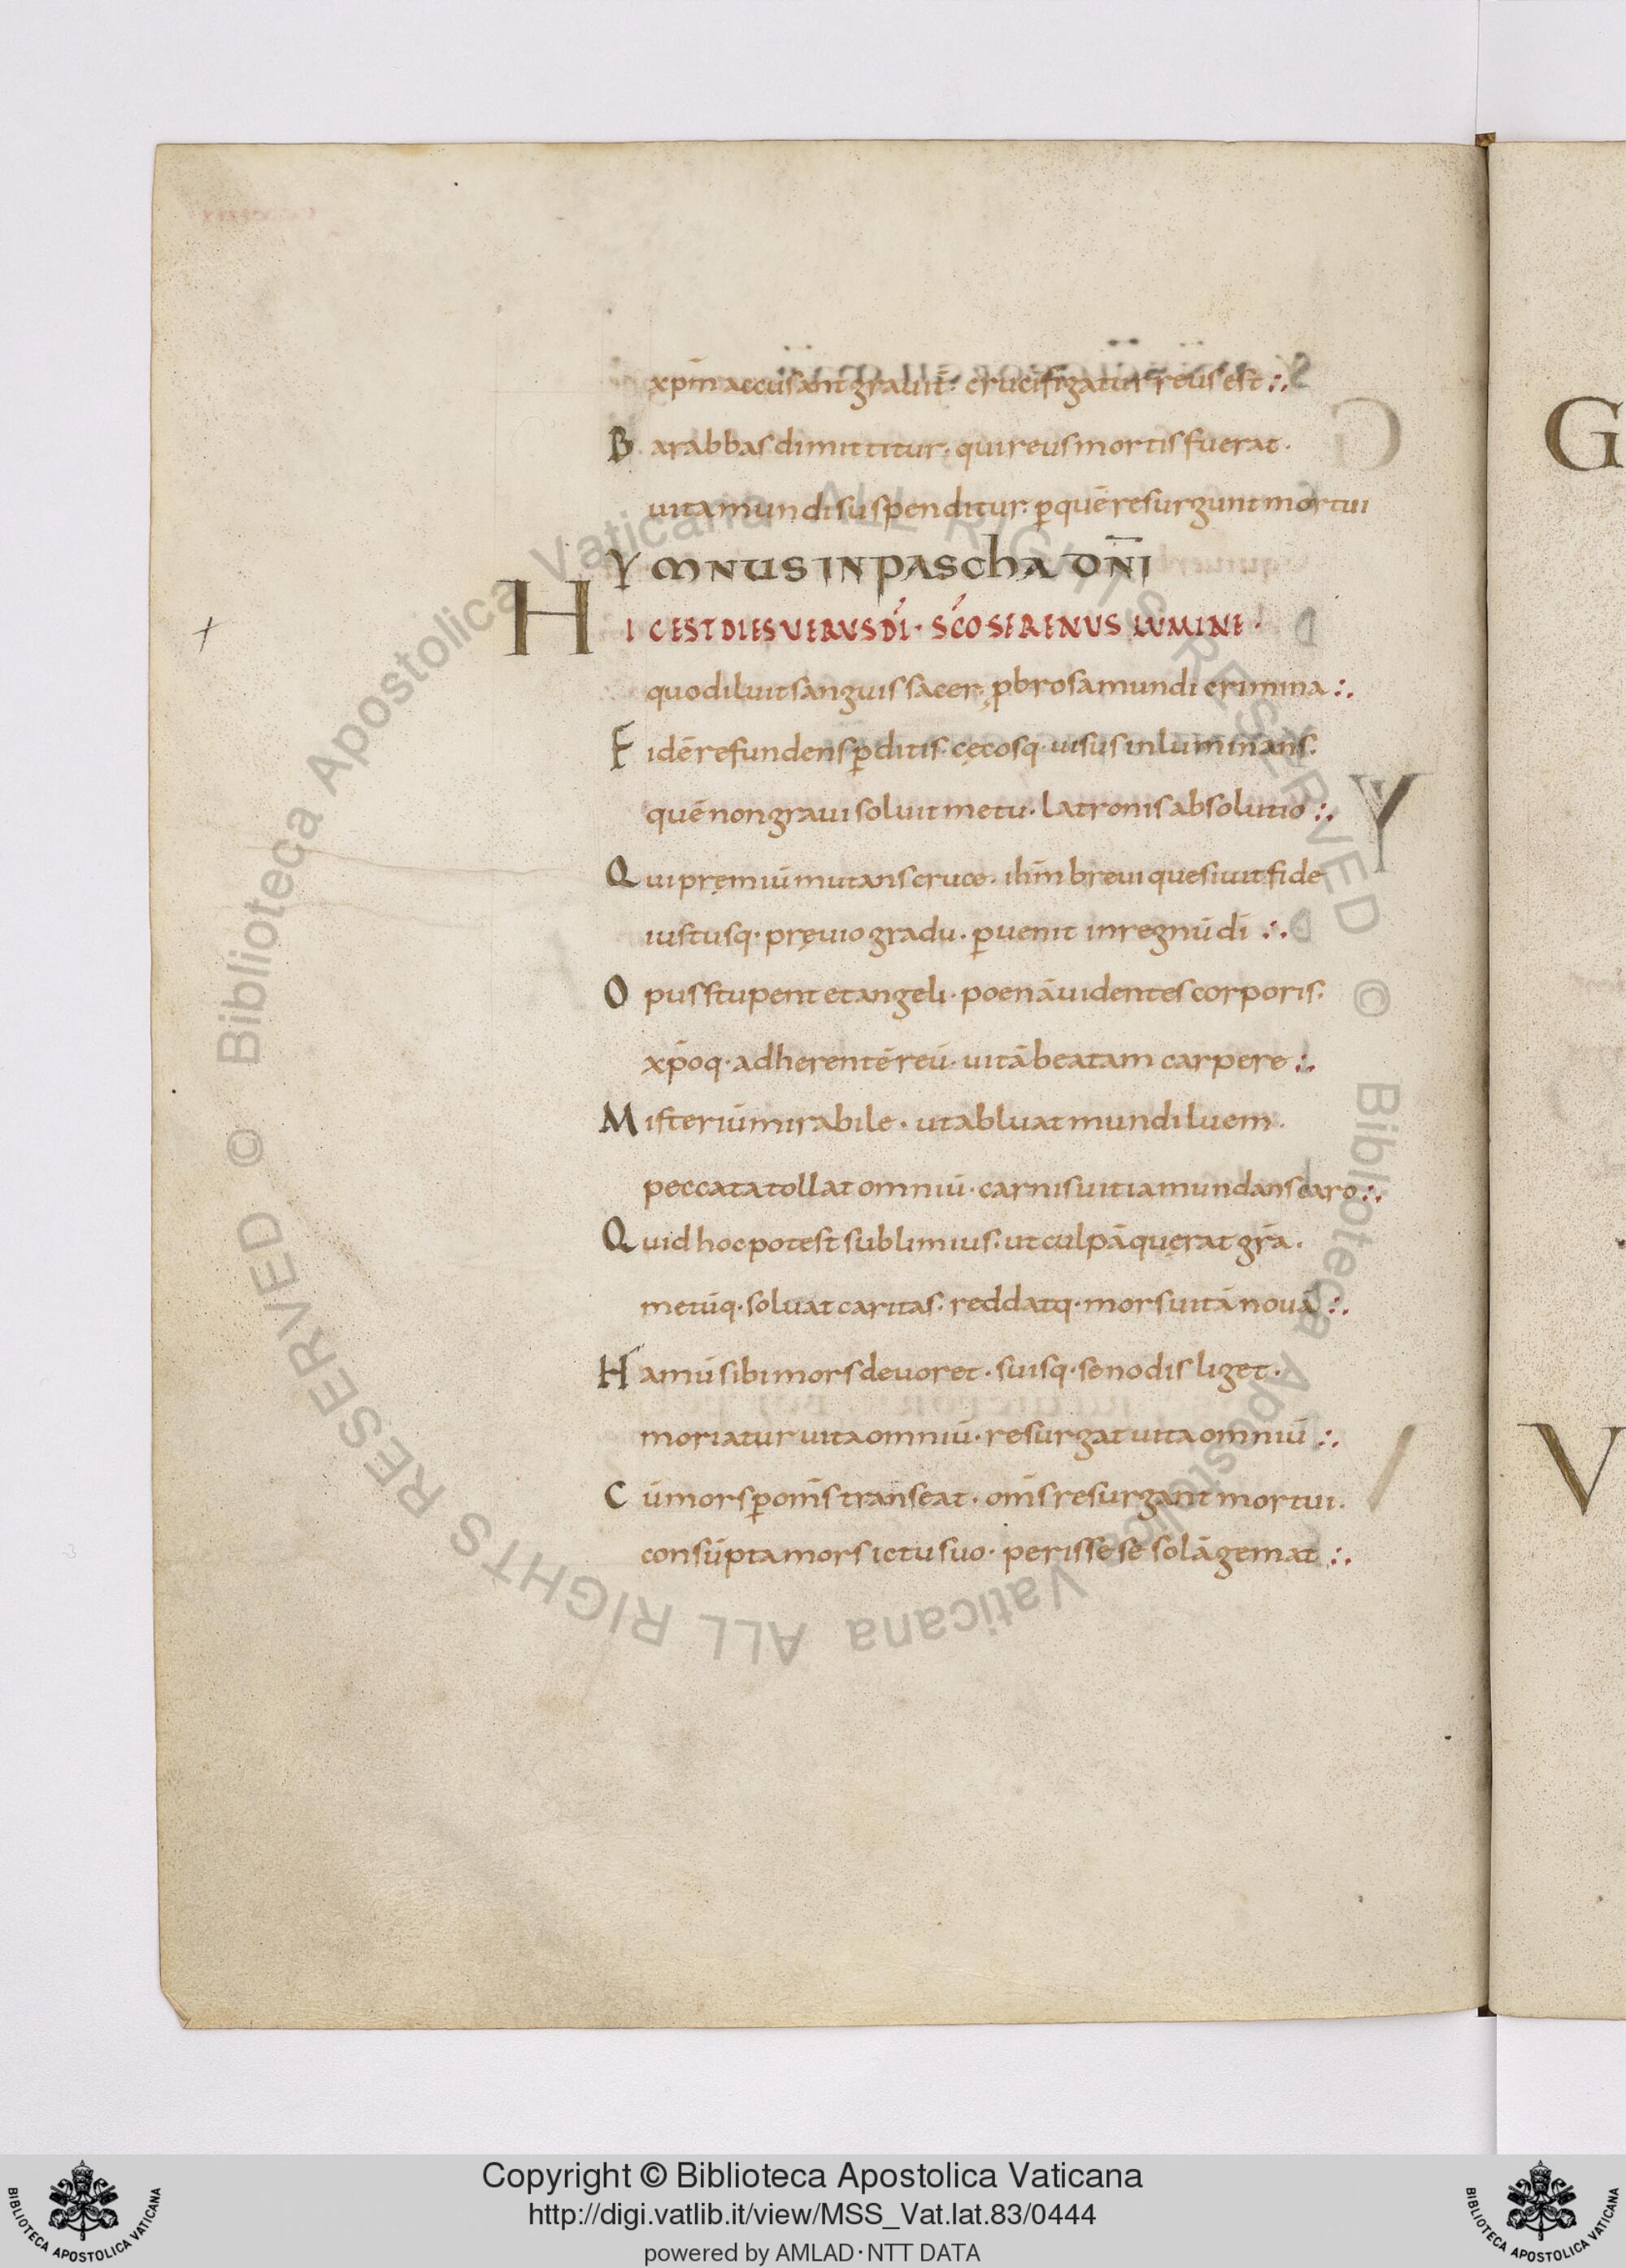 xp̄m accusant grauit̄. crucifigatur reus est :.
Barabbas dimittitur. qui reus mortis fuerat.
uita mundi suspenditur. ꝑ quē resurgunt mortui
YMNUS IN PASCHA DN̄I
HIC EST DIES VERVS DĪ. SC̄O SERENVS LVMINE.
quo diluit sanguis sacer, ꝓbrosa mundi crimina :.
Fidē refundens ꝑditis. cęcosq· uisus inluminans.
quē non graui soluit metu. latronis absolutio :.
Qui pręmiū mutans cruce. ihm̄ breui quesiuit fide
iustusq· pręuio gradu. ꝑuenit in regnū dī :.
Opus stupent et angeli. poenā uidentes corporis.
xp̄oq· adherentē reū. uitā beatam carpere :.
Misteriū mirabile. ut abluat mundi luem.
peccata tollat omniū. carnis uitia mundans caro :.
Quid hoc potest sublimius. ut culpā quęrat gr̄a.
metūq· soluat caritas. reddatq· mors uitā nouā :.
Hamū sibi mors deuoret. suisq· se nodis liget.
moriatur uita omniū. resurgat uita omniū :.
Cū mors ꝑ om̄s transeat. om̄s resurgant mortui.
consūpta mors ictu suo. perisse se solā gemat :.
G
V
© Biblioteca Apostolica Vaticana ALL RIGHTS RESERVED © Biblioteca Apostolica Vaticana ALL RIGHTS RESERVED
Copyright © Biblioteca Apostolica Vaticana
http://digi.vatlib.it/view/MSS_Vat.lat.83/0444
powered by AMLAD·NTT DATA
BIBLIOTECA APOSTOLICA VATICANA
BIBLIOTECA APOSTOLICA VATICANA